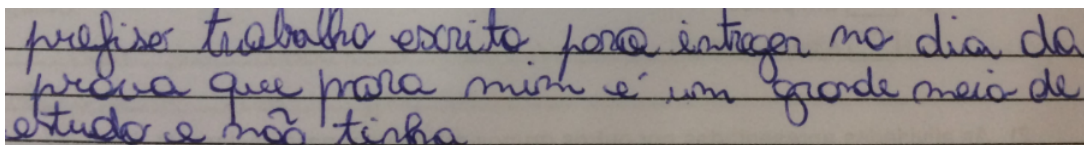 prefiro trabalho escrito para intregar no dia da
prova que para mim é um grande meio de
estudo e não tinha